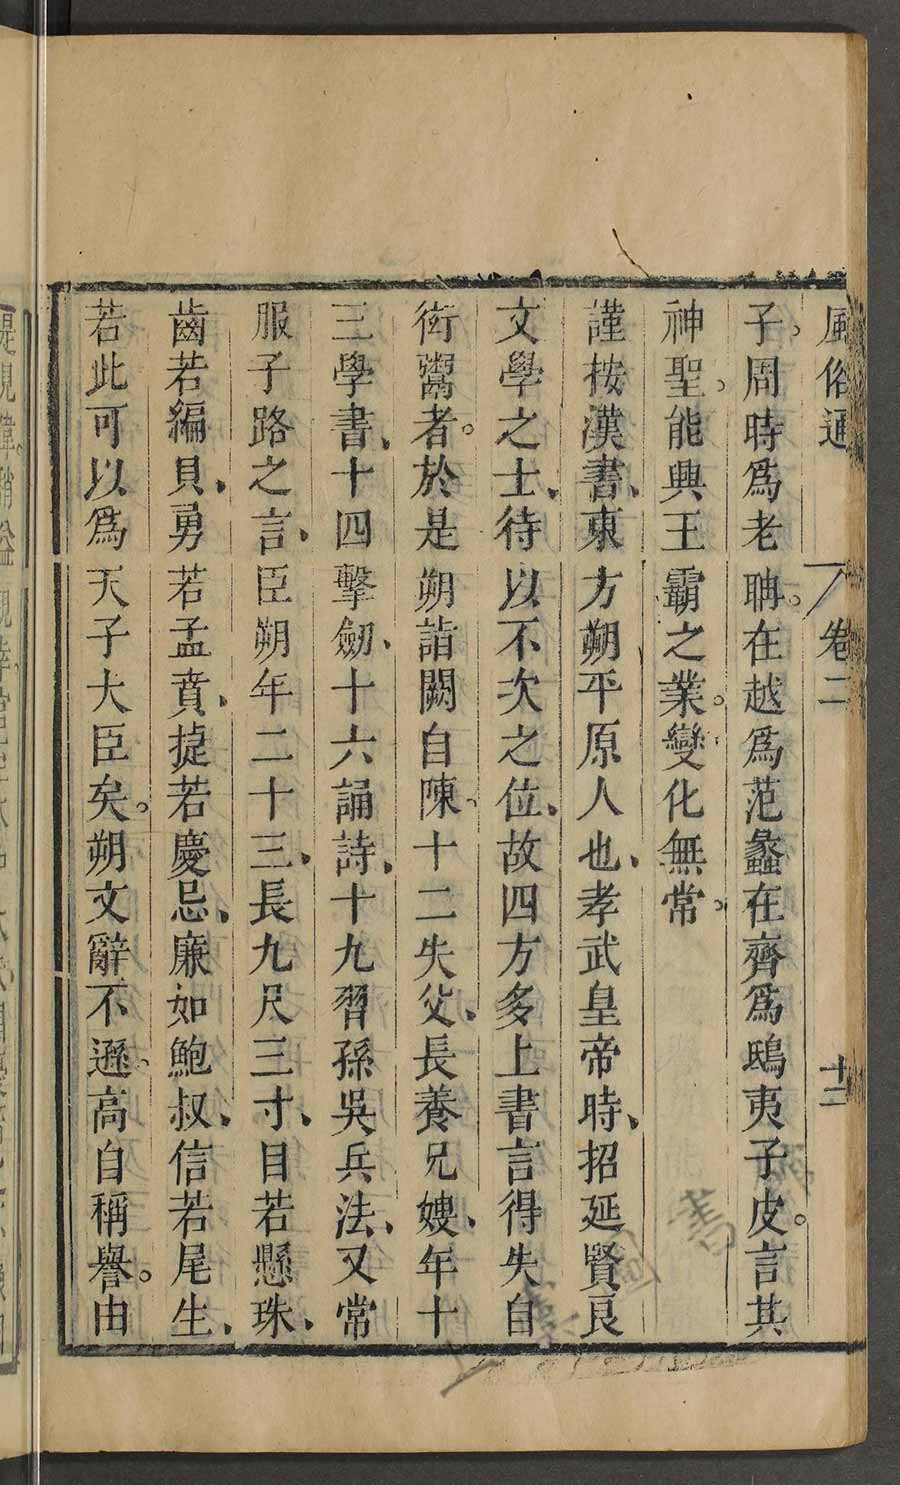 風俗通 卷二 十二
子。周時爲老聃。在越爲范蠡在齊爲鴟夷子皮。言其
神聖。能興王霸之業。變化無常。
謹按漢書、東方朔平原人也、孝武皇帝時、招延賢良
文學之士、待以不次之位、故四方多上書言得失自
衒鬻者。於是朔詣闕自陳、十二失父、長養兄嫂、年十
三學書、十四擊劒、十六誦詩、十九習孫吳兵法、又常
服子路之言、臣朔年二十三、長九尺三寸、目若懸珠、
齒若編貝、勇若孟賁、捷若慶忌、廉如鮑叔、信若尾生、
若此可以爲天子大臣矣。朔文辭不遜、高自稱譽。由